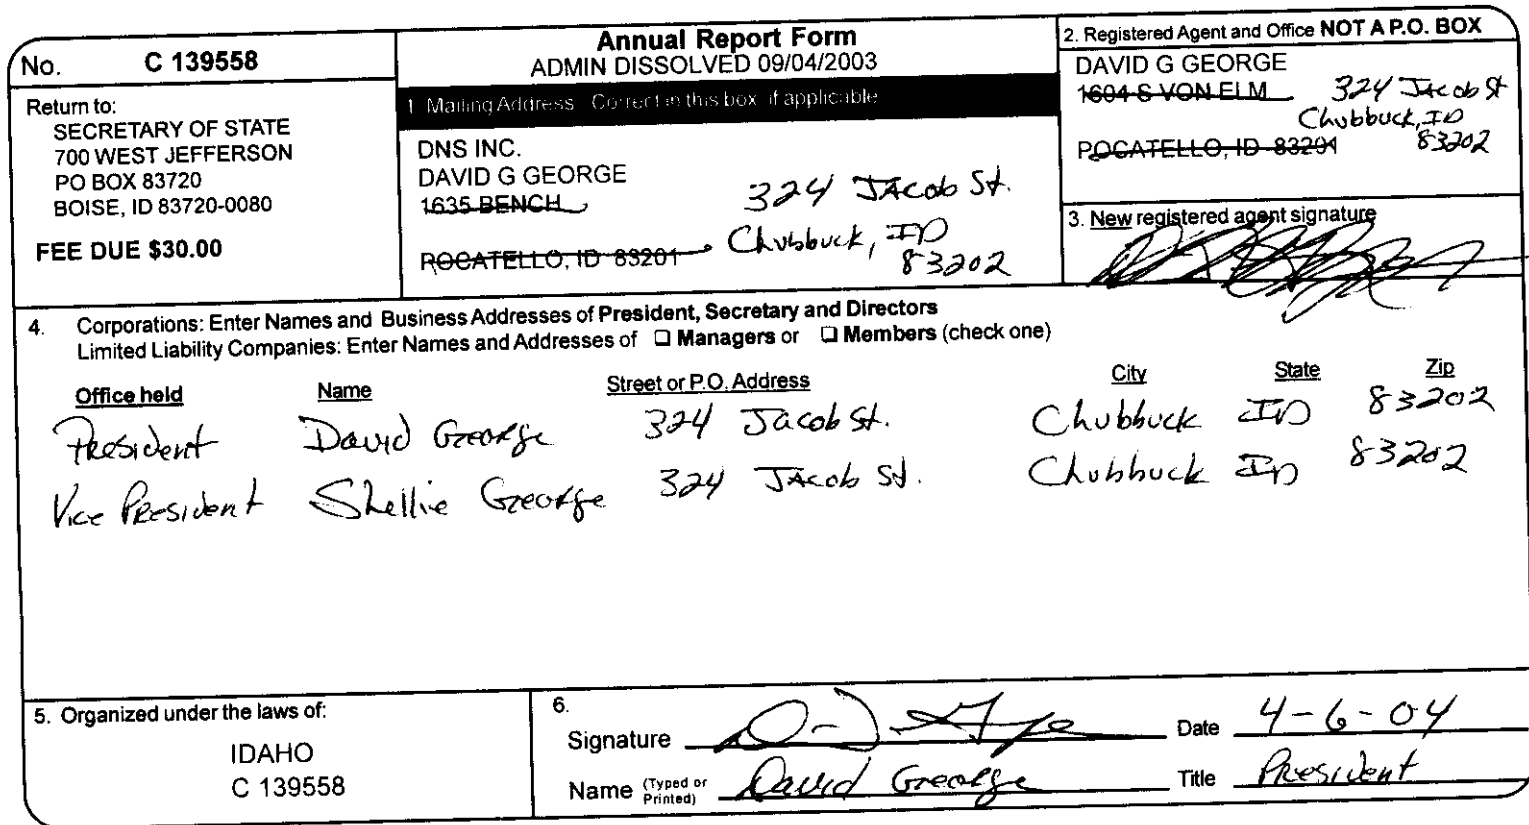 No. C 139558
Return to:
SECRETARY OF STATE
700 WEST JEFFERSON
PO BOX 83720
BOISE, ID 83720-0080
FEE DUE $30.00
Annual Report Form
ADMIN DISSOLVED 09/04/2003
1 Mailing Address Correct in this box if applicable
DNS INC.
DAVID G GEORGE
1635 BENCH 324 Jacob St.
POCATELLO, ID 83201 Chubbuck, ID
83202
2. Registered Agent and Office NOT A P.O. BOX
DAVID G GEORGE
1604 S VON ELM 324 Jacob St
Chubbuck, ID
POCATELLO, ID 83201 83202
3. New registered agent signature
4. Corporations: Enter Names and Business Addresses of President, Secretary and Directors
Limited Liability Companies: Enter Names and Addresses of ❏ Managers or ❏ Members (check one)
Office held Name Street or P.O. Address City State Zip
President David George 324 Jacob St. Chubbuck ID 83202
Vice President Shellie George 324 Jacob St. Chubbuck ID 83202
5. Organized under the laws of:
IDAHO
C 139558
6.
Signature Date 4-6-04
Name (Typed or Printed) David George Title President